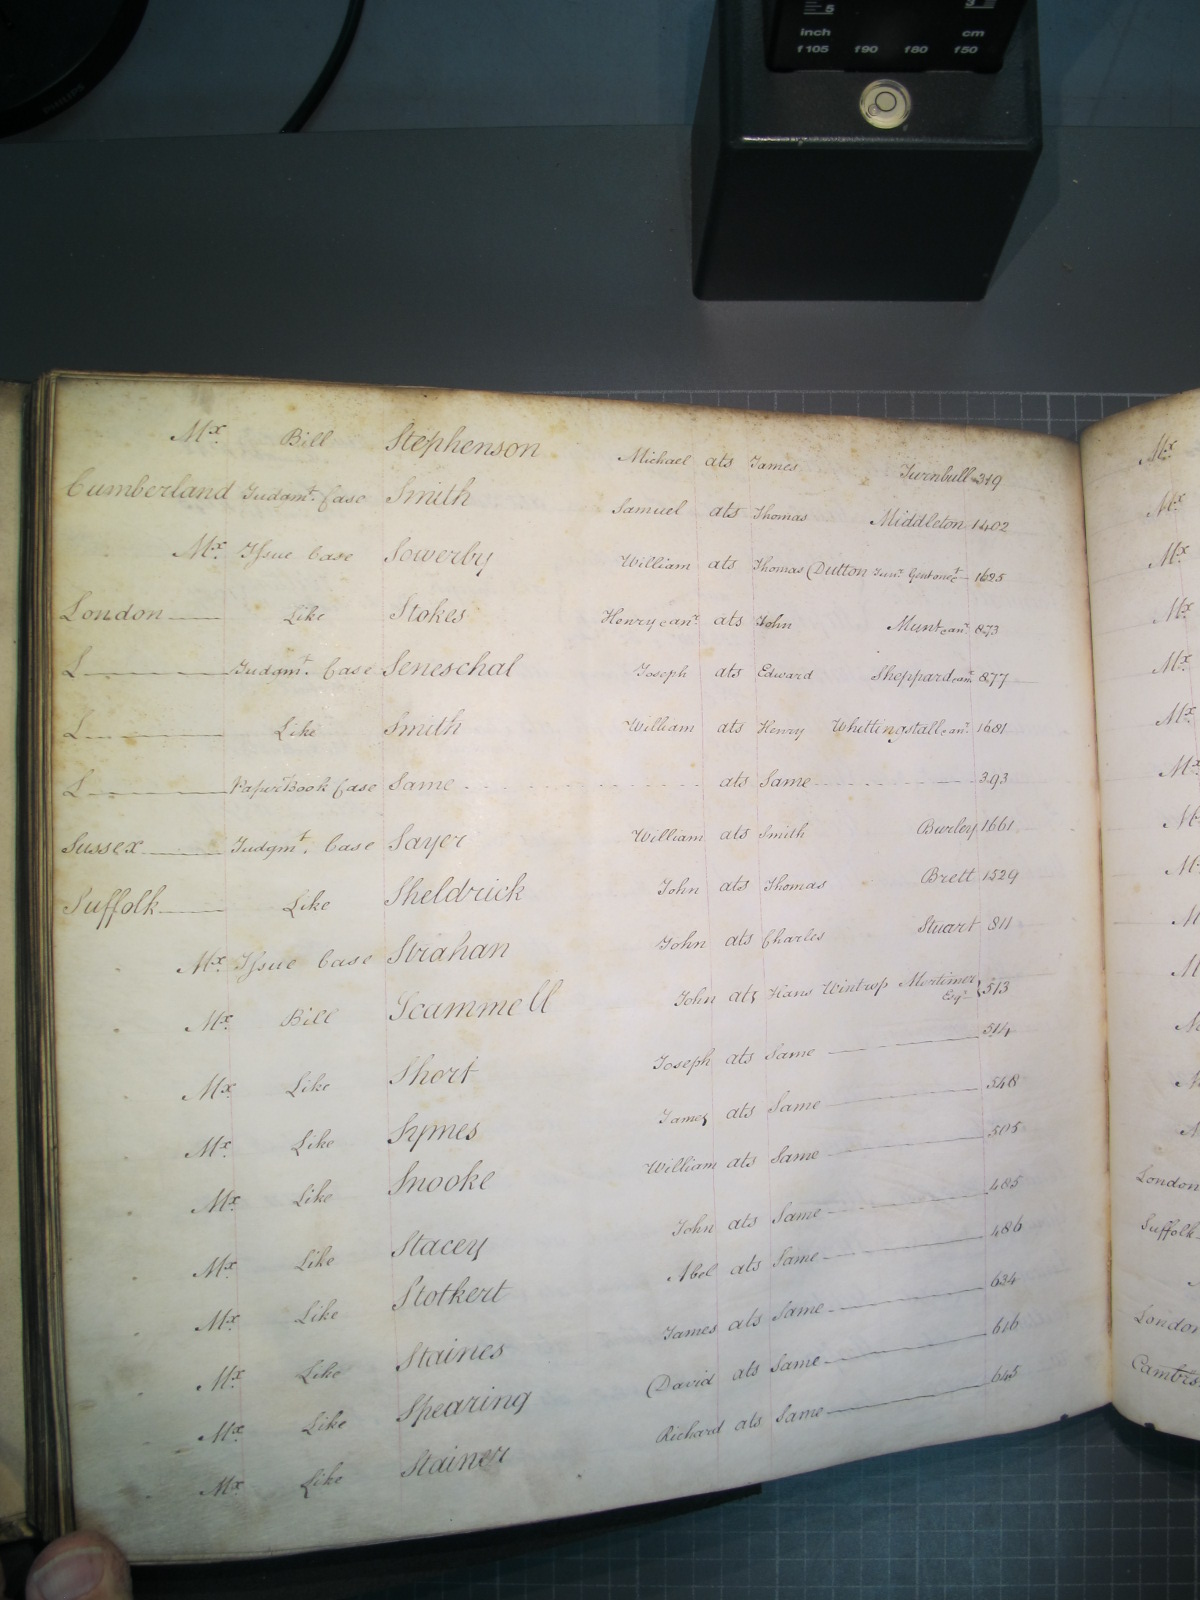 5
inch cm
f105 f90 f80 f50
Mx. Bill Stephenson Michael ats James Turnbull 319
Cumberland Judgmt. Case Smith Samuel ats Thomas Middleton 1402
Mx. Issue Case Sowerby William ats Thomas Dutton Junr. 1625
London Like Stokes Henry & anr. ats John Munt & anr. 873
L Judgmt. Case Seneschal Joseph ats Edward Sheppard & anr. 877
L Like Smith William ats Henry Whittingstall & anr. 1681
L Paper Book Case Same ats Same 393
Sussex Judgmt. Case Sayer William ats Smith Burley 1661
Suffolk Like Sheldrick John ats Thomas Brett 1529
Mx. Issue Case Strahan John ats Charles Stuart 811
Mx. Bill Scammell John ats Hans Wintrop Mortimer Esqr. 513
Mx. Like Short Joseph ats Same 514
Mx. Like Symes James ats Same 548
Mx. Like Snooke William ats Same 505
Mx. Like Stacey John ats Same 485
Mx. Like Stotkert Abel ats Same 486
Mx. Like Staines James ats Same 634
Mx. Like Spearing David ats Same 616
Mx. Like Stainer Richard ats Same 645
Mx
Mx
Mx
Mx
Mx
Mx
Mx
London
Suffolk
London